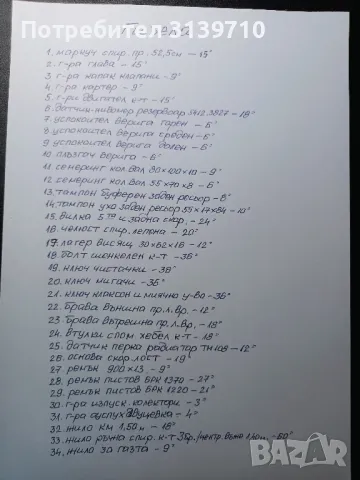 1. маркуч спир. пр. 52,5см – 15°
2. г-ра глава – 15°
3. г-ра капак клапани – 9°
4. г-ра картер – 9°
5. г-ри двигател к-т – 15°
6. датчик-нивомер резервоар 5412.3827 – 18°
7. успокоител верига горен – 6°
8. успокоител верига среден – 6°
9. успокоител верига долен – 6°
10. плъзгач верига – 6°
11. семеринг кол. вал 80×100×10 – 9°
12. семеринг кол. вал 55×70×8 – 6°
13. тампон буферен заден ресьор – 6°
14. тампон ухо заден ресьор 55×17×84 – 10°
15. вилка 5та и задна скор. – 24°
16. челюст спир. лепена – 20°
17. лагер висящ 30×62×16 – 12°
18. болт шенкелен к-т – 36°
19. ключ чистачки – 38°
20. ключ мигачи – 36°
21. ключ клаксон и миячно у-во – 36°
22. брава външна пр. л. вр. – 12°
23. брава вътрешна пр. л. вр. – 18°
24. втулки спом. хебел к-т – 18°
25. датчик перка радиатор ТМ108 – 12°
26. основа скор. лост – 19°
27. ремък 900×13 – 9°
28. ремък пистов 6РК 1370 – 27°
29. ремък пистов 6РК 1220 – 21°
30. г-ра изпуск. колектори – 3°
31. г-ра ауспух двуцевка – 4°
32. жило км 1,50м – 18°
33. жило ръчна спир. к-т 3бр. – 60°
34. жило за газта – 9°
bazar